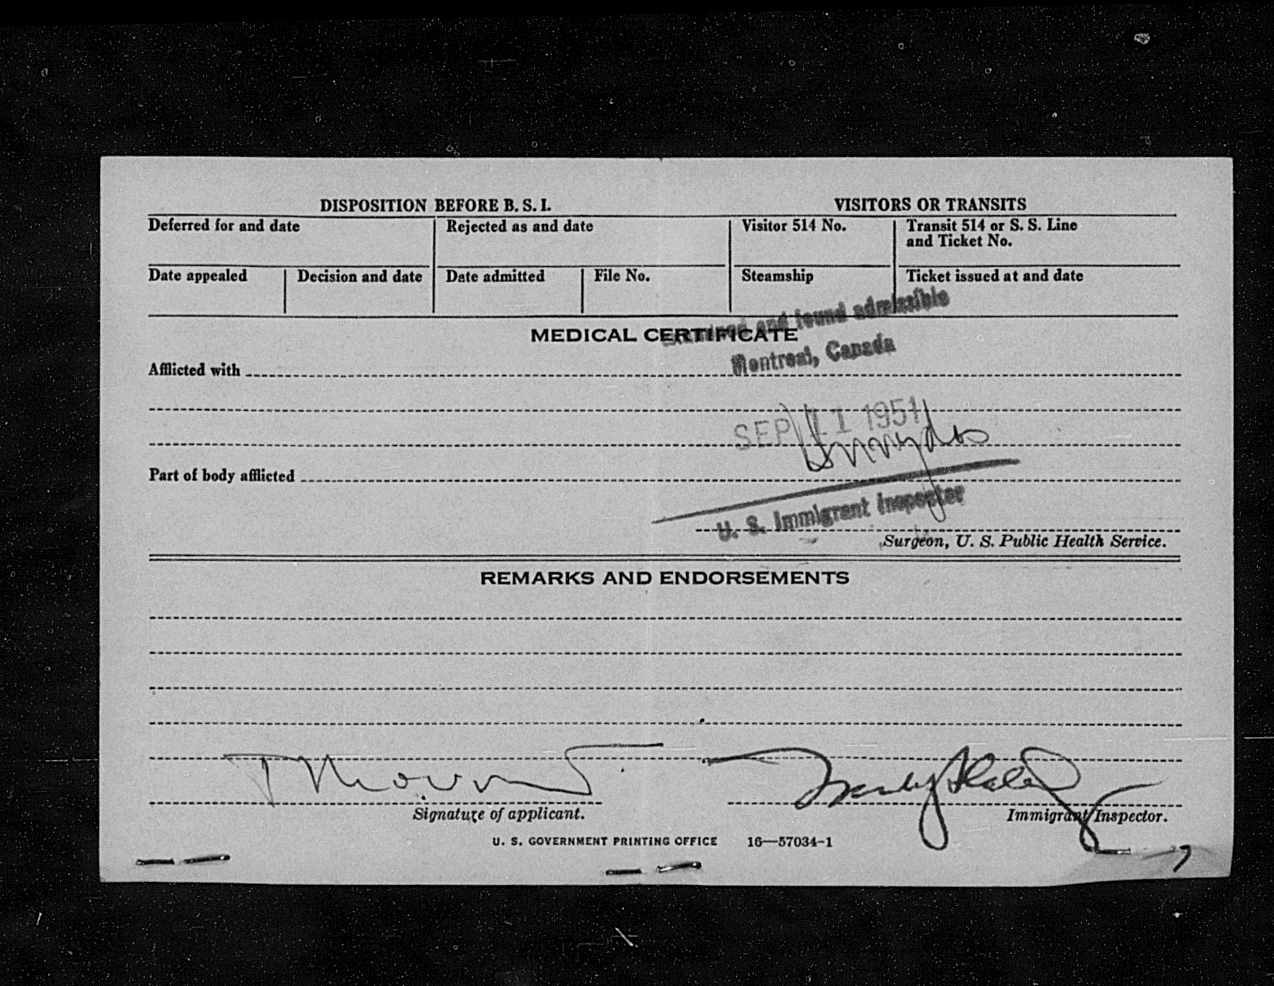 DISPOSITION BEFORE B. S. I.
VISITORS OR TRANSITS
Deferred for and date
Rejected as and date
Visitor 514 No.
Transit 514 or S. S. Line and Ticket No.
Date appealed
Decision and date
Date admitted
File No.
Steamship
Ticket issued at and date
and found admissible
MEDICAL CERTIFICATE
Montreal, Canada
Afflicted with
SEP 11 1951
Part of body afflicted
U. S. Immigrant Inspector
Surgeon, U. S. Public Health Service.
REMARKS AND ENDORSEMENTS
Signature of applicant.
Immigrant Inspector.
U. S. GOVERNMENT PRINTING OFFICE 16—57034-1